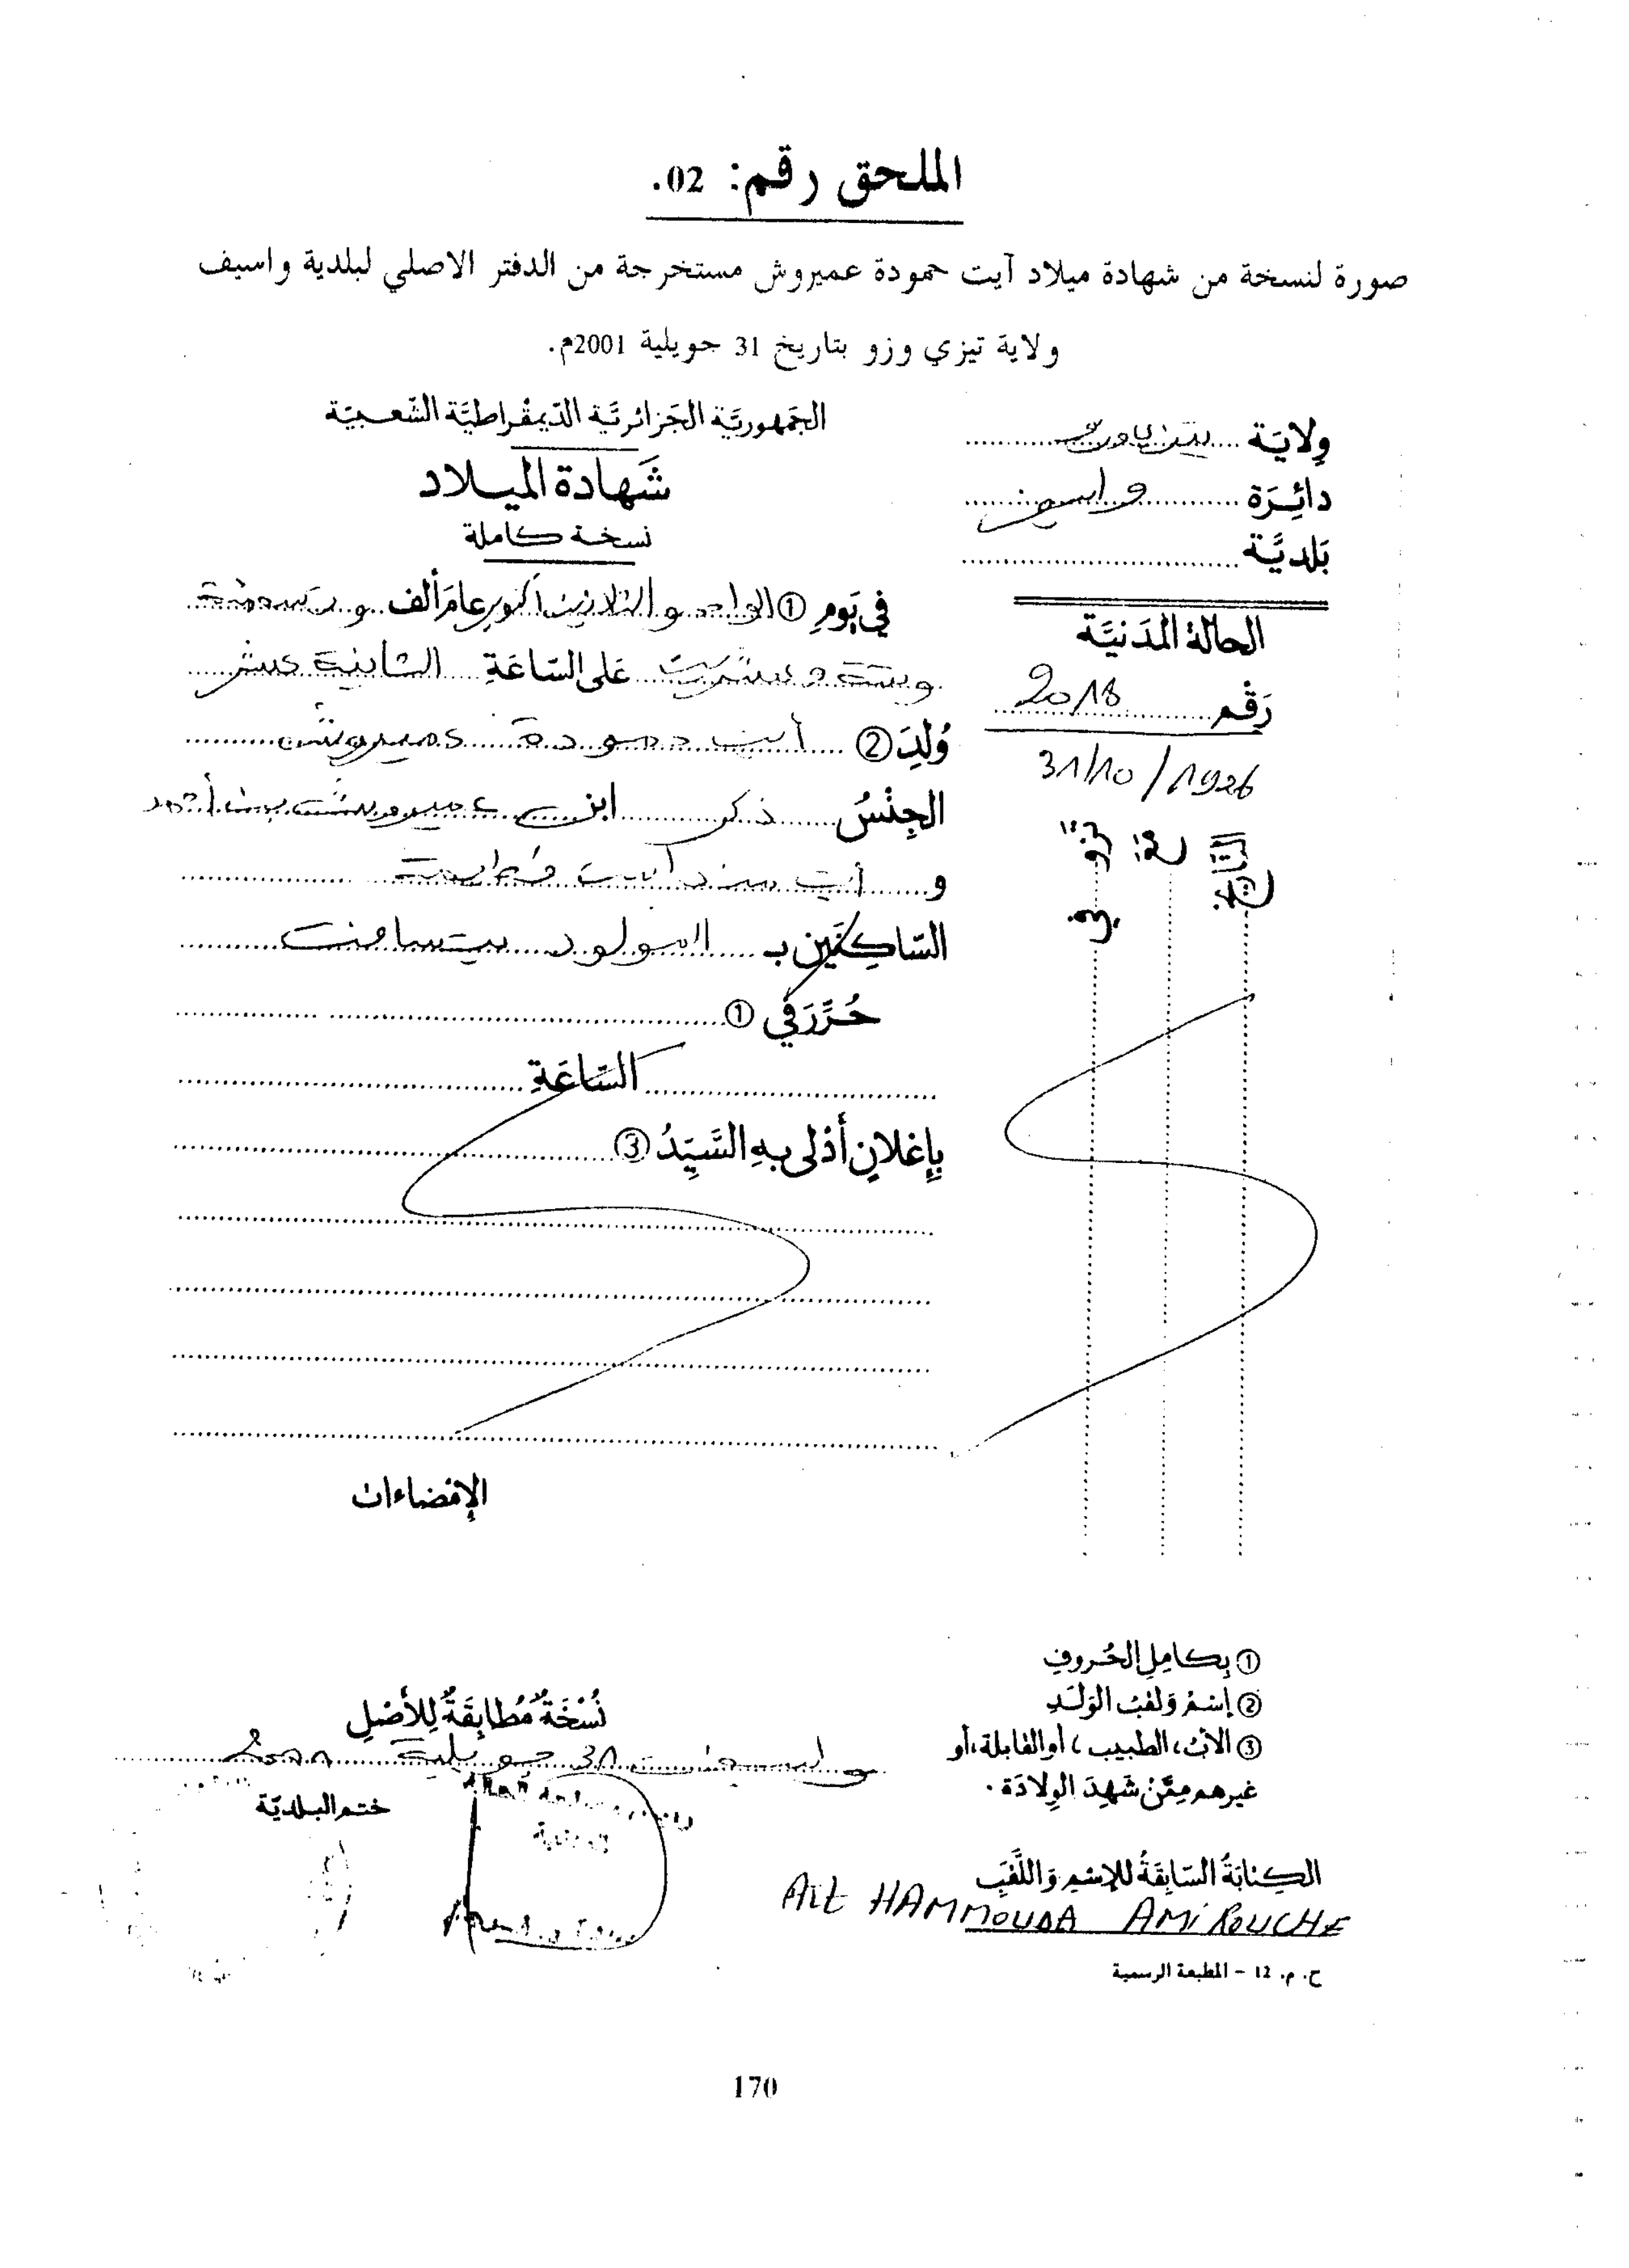 الملحق رقم: 02.
صورة لنسخة من شهادة ميلاد آيت حمودة عميروش مستخرجة من الدفتر الاصلي لبلدية واسيف
ولاية تيزي وزو بتاريخ 31 جويلية 2001م.
الجمهوريَّة الجزائريَّة الدّيمقراطيَّة الشّعبيّة
شَهادة الميلاد
نسخة كاملة
وِلايَة تيزي وزو
دائِرَة واسيف
بَلديَّة
الحالة المَدنيَّة
رَقم 2018
31/10/1926
التاريخ
في يَوم ① الواحد والثلاثين أكتوبر عامَ ألف وتسعمئة
وستة وعشرين على السّاعَةِ الثانية عشر
وُلِدَ ② آيت حمودة عميروش
الجِنْسُ ذكر ابن عميروش بن أحمد
و آيت فطيمة
السّاكِنَين بـ
حُرِّرَ في ①
السّاعَةِ
بِإعْلانٍ أدْلى بهِ السَّيِّدُ ③
الإمضاءات
① بِكامِلِ الحُروفِ
② إسْمُ وَلقبُ الوَلَدِ
③ الأبُ، الطبيب، أو القابلة، أو
غيرهم مِمَّنْ شَهِدَ الوِلادَة.
نُسْخَةٌ مُطابِقَةٌ لِلأصْلِ
31 جويلية 2001
ختم البلديّة
الكِتابَةُ السّابِقَةُ لِلإسْمِ وَاللَّقَبِ
Ait HAMMOUDA AMIROUCHE
ح. م. 12 – المطبعة الرسمية
170